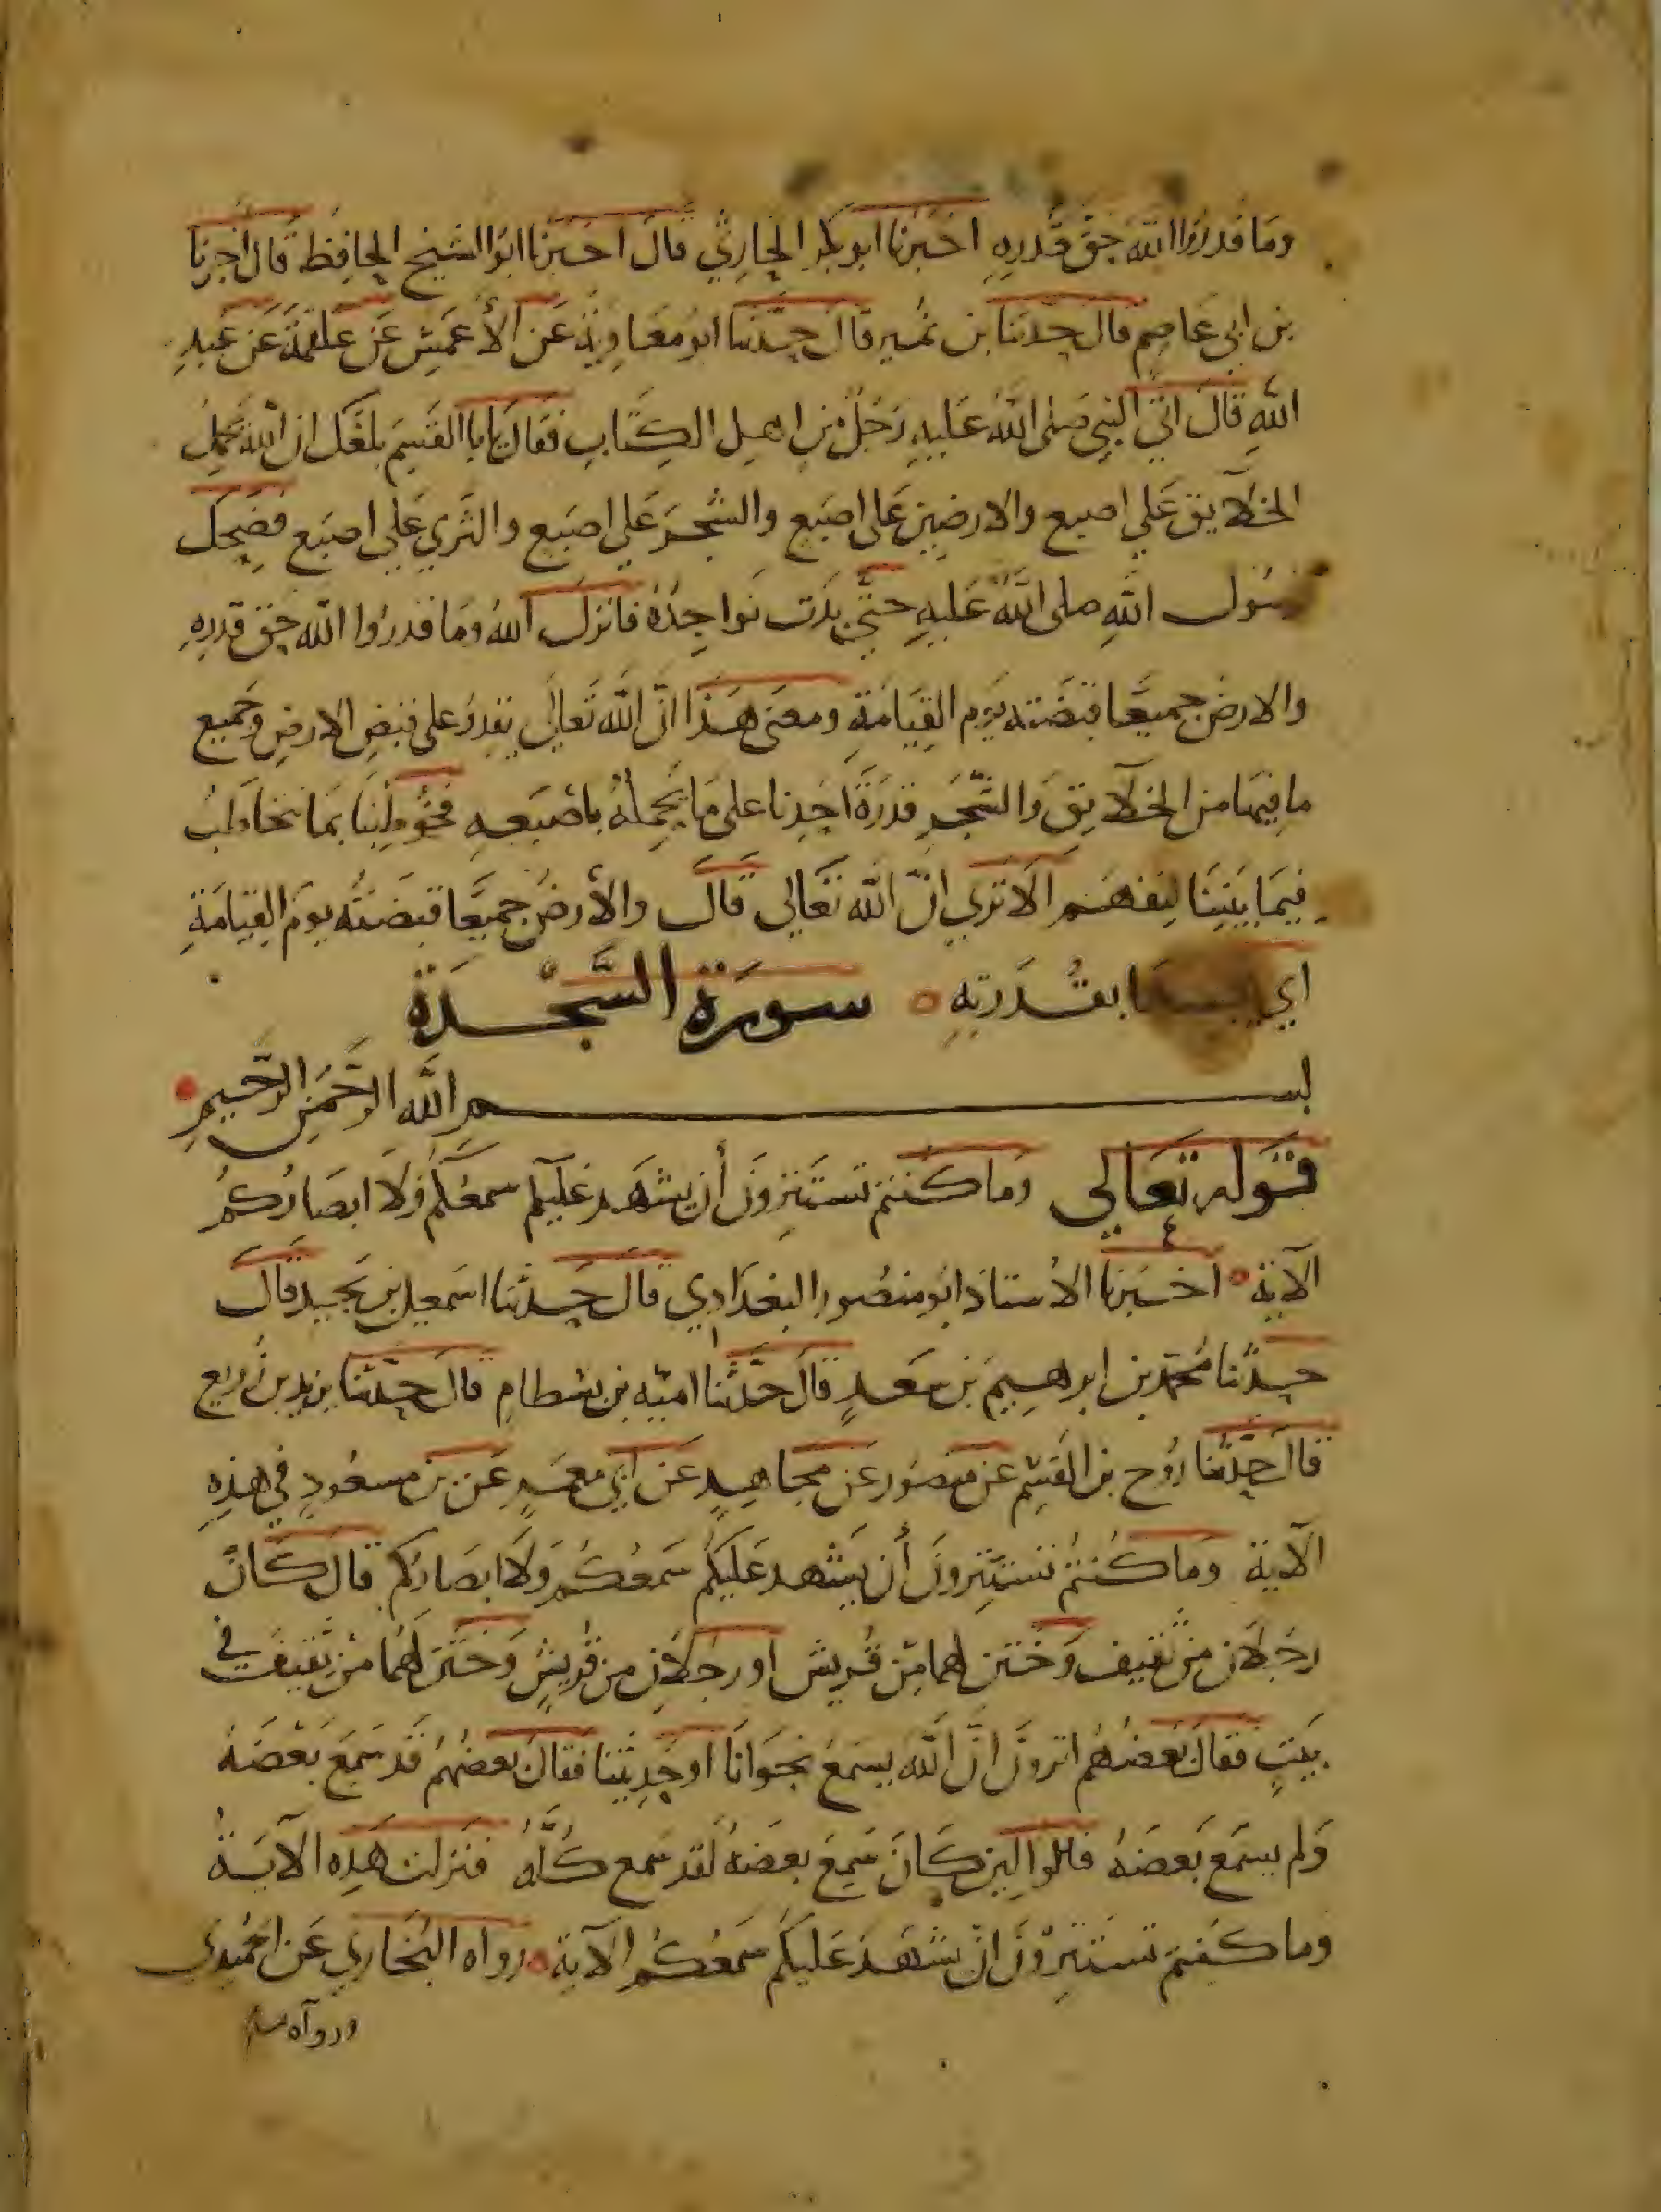 وما قدروا الله حق قدره اخبرنا ابو بكر الحارثي قال اخبرنا ابو الشيخ الحافظ قال اخبرنا
بن ابي عاصم قال حدثنا بن نمير قال حدثنا ابو معاوية عن الأعمش عن علقمة عن عبد
الله قال اتي النبي صلى الله عليه رجل من اهل الكتاب فقال يابا القسم بلغك ان الله يحمل
الخلايق علي اصبع والارضين على اصبع والشجر علي اصبع والثري علي اصبع فضحك
رسول الله صلى الله عليه حتي بدت نواجذه فانزل الله وما قدروا الله حق قدره
والارض جميعا قبضته يوم القيامة ومعنى هذا انّ الله تعالي يقدر على قبض الارض وجميع
ما فيها من الخلايق والشجر قدرة احدنا على ما يحمله باصبعه فخوطبنا بما نتخاطب
فيما بيننا لنفهم الا تري انّ الله تعالي قال والأرض جميعا قبضته يوم القيامة
اي بقدرته سورة السجدة
بسم الله الرحمن الرحيم
قوله تعالي وما كنتم تستترون أن يشهد عليكم سمعكم ولا ابصاركم
الآية اخبرنا الاستاذ ابو منصور البغدادي قال حدثنا اسمعيل بن نجيد قال
حدثنا محمد بن ابرهيم بن سعد قال حدثنا امية بن بسطام قال حدثنا يزيد بن زريع
قال حدثنا روح بن القسم عن منصور عن مجاهد عن ابي معمر عن بن مسعود في هذه
الآية وما كنتم تستترون أن يشهد عليكم سمعكم ولا ابصاركم قال كان
رجلان من ثقيف وختن لهما من قريش او رجلان من قريش وختن لهما من ثقيف في
بيت فقال بعضهم اترون انّ الله يسمع نجوانا او حديثنا فقال بعضهم قد سمع بعضه
ولم يسمع بعضه قالوا لين كان سمع بعضه لقد سمع كله فنزلت هذه الآية
وما كنتم تستترون ان يشهد عليكم سمعكم الآية رواه البخاري عن الحميدي
ورواه